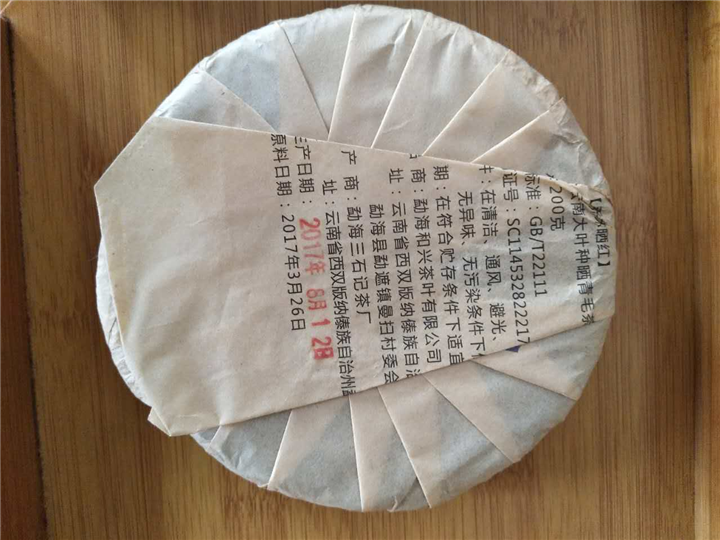 晒红】
南大叶种晒青毛茶
200克
标准：GB/T22111
证号：SC11453282217
：在清洁、通风、避光、
无异味、无污染条件下
期：在符合贮存条件下适宜
商：勐海和兴茶叶有限公司
址：云南省西双版纳傣族自治
勐海县勐遮镇曼扫村委会
产 商：勐海三石记茶厂
址：云南省西双版纳傣族自治州
产日期：2017年8月12日
原料日期：2017年3月26日